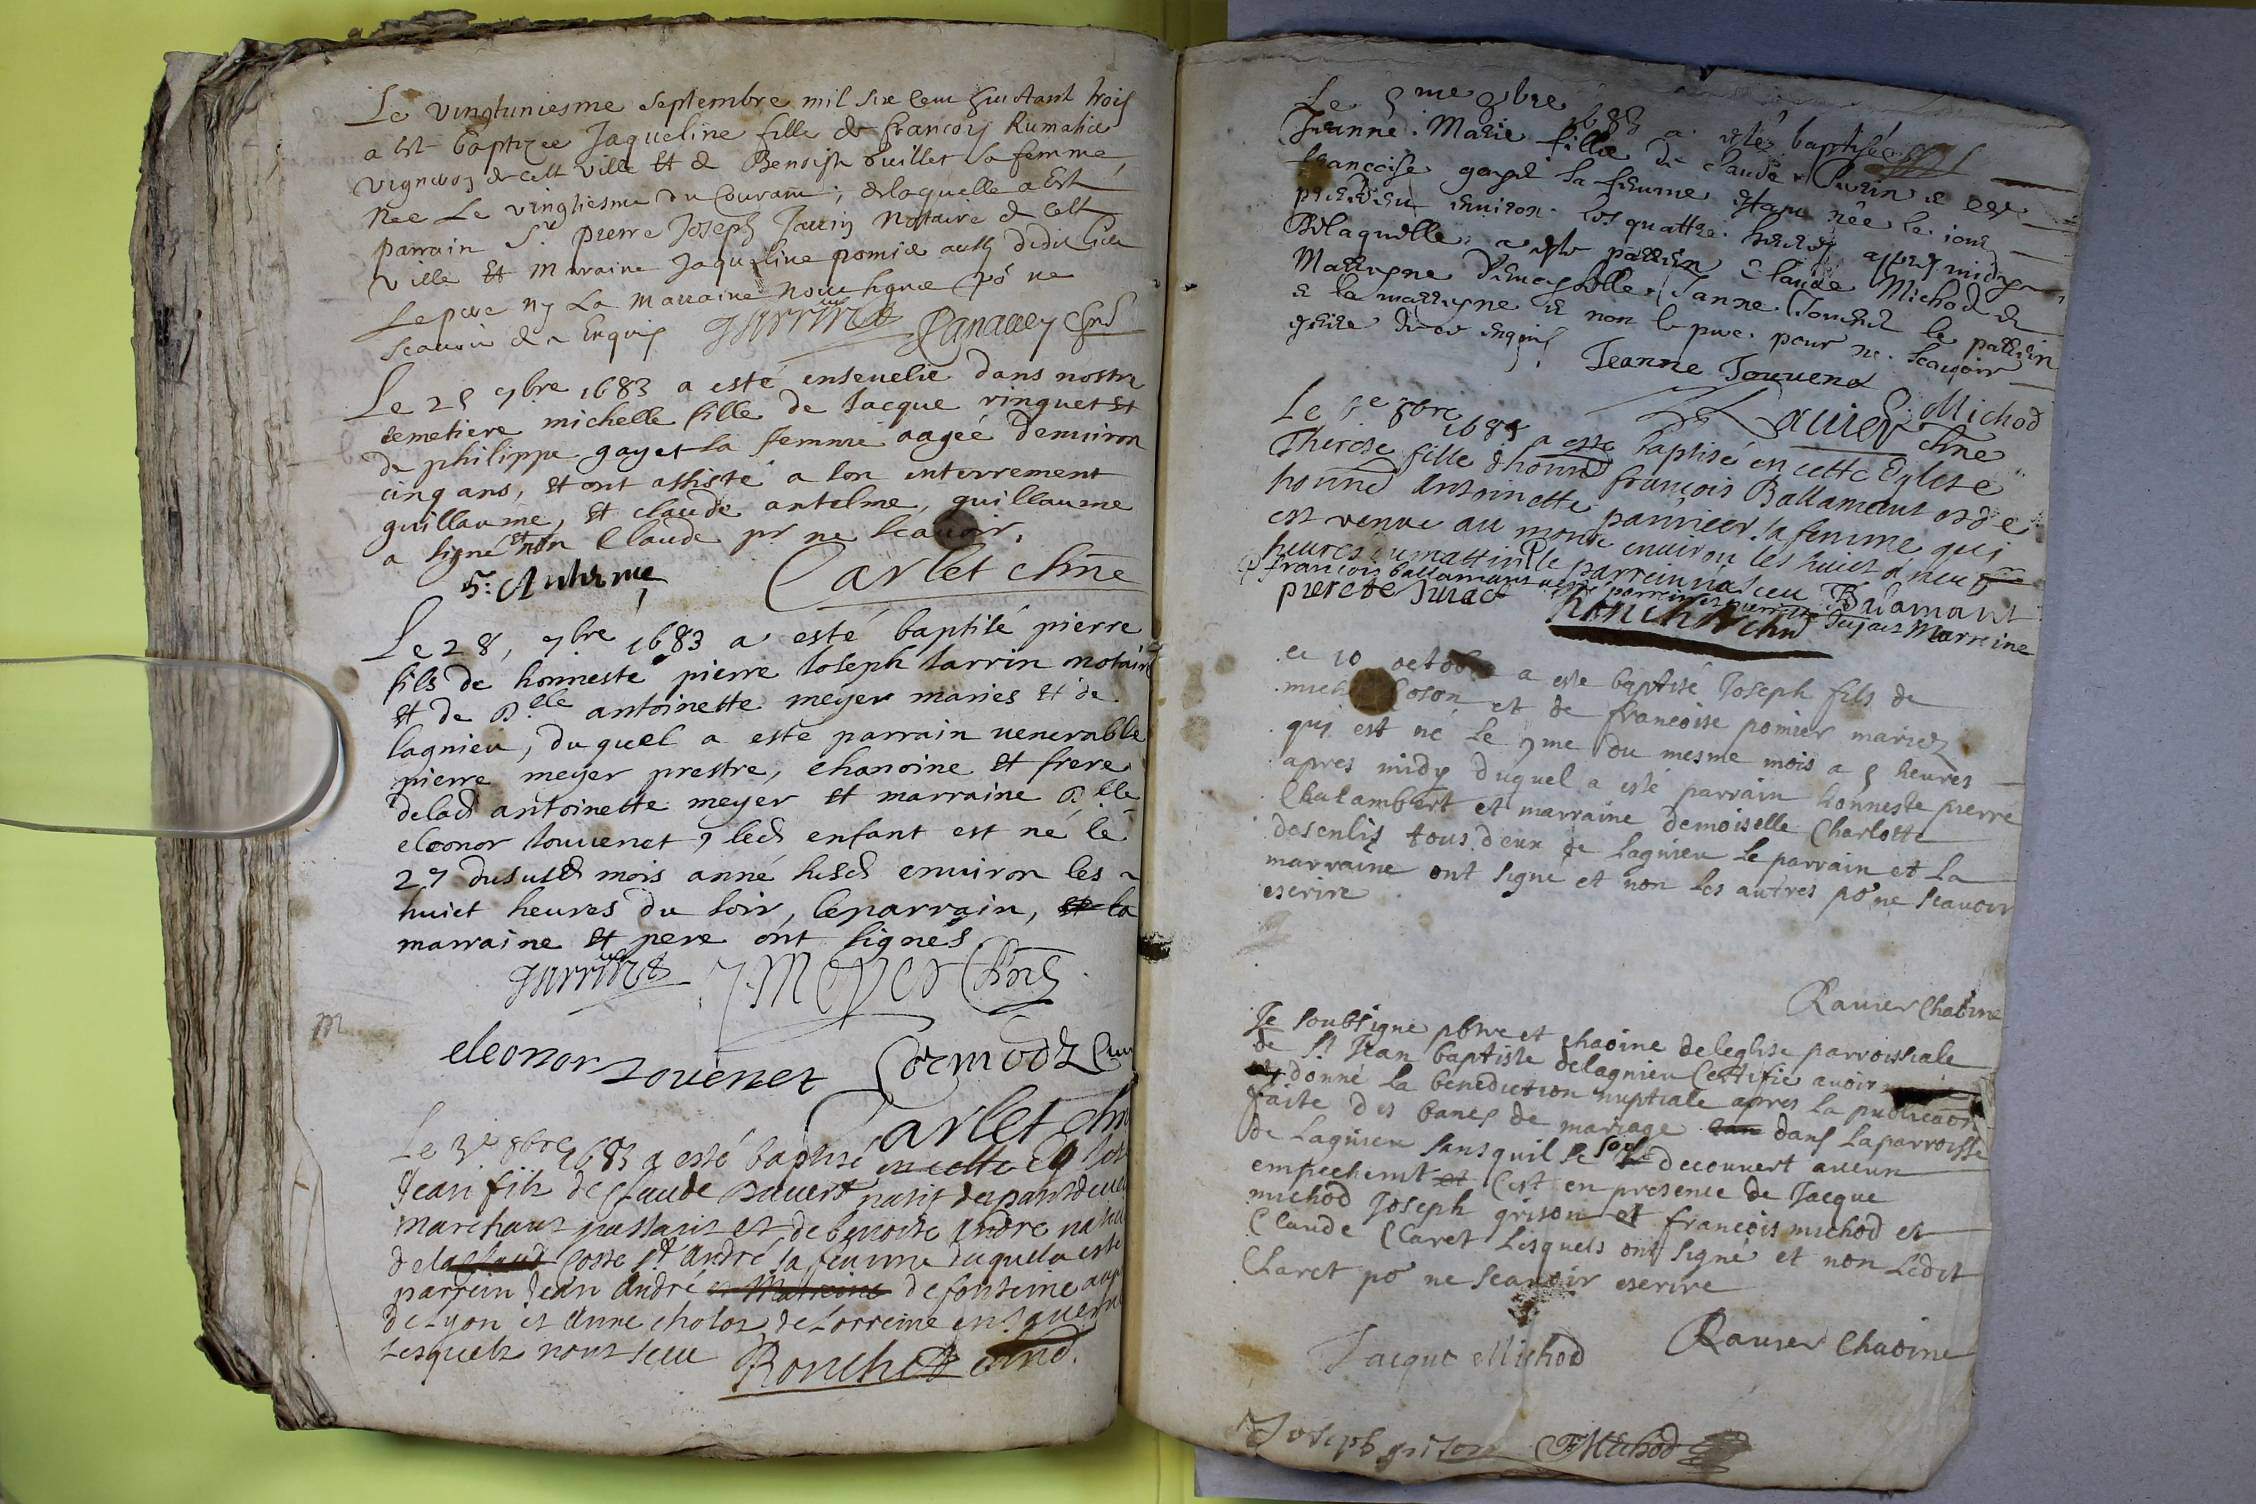 Le vingtuniesme septembre mil six cent huictant trois
a est baptizee Jaqueline fille de francois Rumatier
vigneron de cest ville et de Benoiste buillet sa femme
nee le vingtiesme du courant, de laquelle a est
parrain Sr. pierre Joseph Jarrin Notaire de cest
ville et maraine Jaqueline pomie aussy dudit lieu
Le pere ny La marraine nont signe po ne
scavoir de ce Enquis Jarrin
Le 25 7bre 1683 a esté enseuelie dans nostre
cemetiere michelle fille de Jacque vinguet et
de philippe gayet sa femme aagéé denuiron
cinq ans, et ont assisté a son enterrement
guillaume, et claude antelme, guillaume
a signé et non Claude pr ne scauoir.
G. Antelme Carlet chne
Le 28, 7bre 1683 a esté baptisé pierre
fils de honneste pierre Ioseph Iarrin notaire
et de Dlle antoinette meyer mariés et de
lagnieu, duquel a esté parrain venerable
pierre meyer prestre, chanoine et frere
delad antoinette meyer et marraine Dlle
eleonor Iouuenet, led enfant est né le
27 dususd mois anné susd enuiron les
huict heures du soir, le parrain, et la
marraine et pere ont signés
Jarrin P. Meyer Chne
eleonor Iouenet Cormod Cure
Carlet chne
Le 3e 8bre 1683 a esté baptisé en cette
Jean fils de Claude
marchant passant et de benoite André
de la Coste St. André sa femme duquel a este
parrein Jean André et Marreine de fonteine
de Lyon et Anne cholot de Lorreine
Lesquels n'ont sceu Ronchet chne
Le 5me 8bre 1683 a estez baptisée
Jeanne Marie fille de claude
francoise gayet sa femme estant née le iour
precedent enuiron les quattre heures apres midy
De laquelle a este parrein Claude Michod et
Marrayne Demoyselle Janne Iouuenet le parrein
et la marrayne et non le pere pour ne scauoir
escrire de ce enquis Jeanne Jouuenet
C. Michod
Rauier chne
Le 8bre 1683 a esté baptisé en cette Eglise
Therese fille d'honne françois Ballamant et de
honne Antoinette sa femme qui
est venue au monde enuiron les huict a neuf
heures du mattin le parrein na sceu
francois ballamant Balamant
pierette Marreine
Ronchet chne
Le 10 octobre a este baptisé Joseph fils de
michel Coson et de francoise pomier mariez
qui est né le 9me du mesme mois a 5 heures
apres midy duquel a esté parrain honneste pierre
Chalambert et marraine demoiselle Charlotte
desenlis tous deux de lagnieu le parrain et la
marraine ont signé et non les autres po ne scauoir
escrire
Rauier Chaoine
Je soubsigne pbre et chaoine de leglise parroissiale
de St Jean baptiste delagnieu Certifie auoir
donné la benediction nuptiale apres la publicaon
faite des bancs de mariage dans la parroisse
de Lagnieu sans quil se soit decouuert aucun
empechemt et C'est en presence de Jacque
michod Joseph grison et francois michod et
Claude Claret Lesquels ont signé et non Ledit
Claret po ne scauoir escrire
Rauier Chaoine
Jacque Michod
Joseph grison F Michod